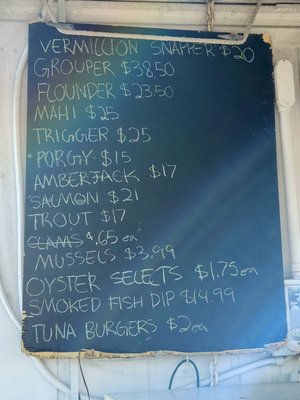 VERMILLION SNAPPER $20
GROUPER $38.50
FLOUNDER $23.50
MAHI $25
TRIGGER $25
PORGY $15
AMBERJACK $17
SALMON $21
TROUT $17
CLAMS $.65 ea
MUSSELS $3.99
OYSTER SELECTS $1.75 ea
SMOKED FISH DIP $14.99
TUNA BURGERS $2 ea